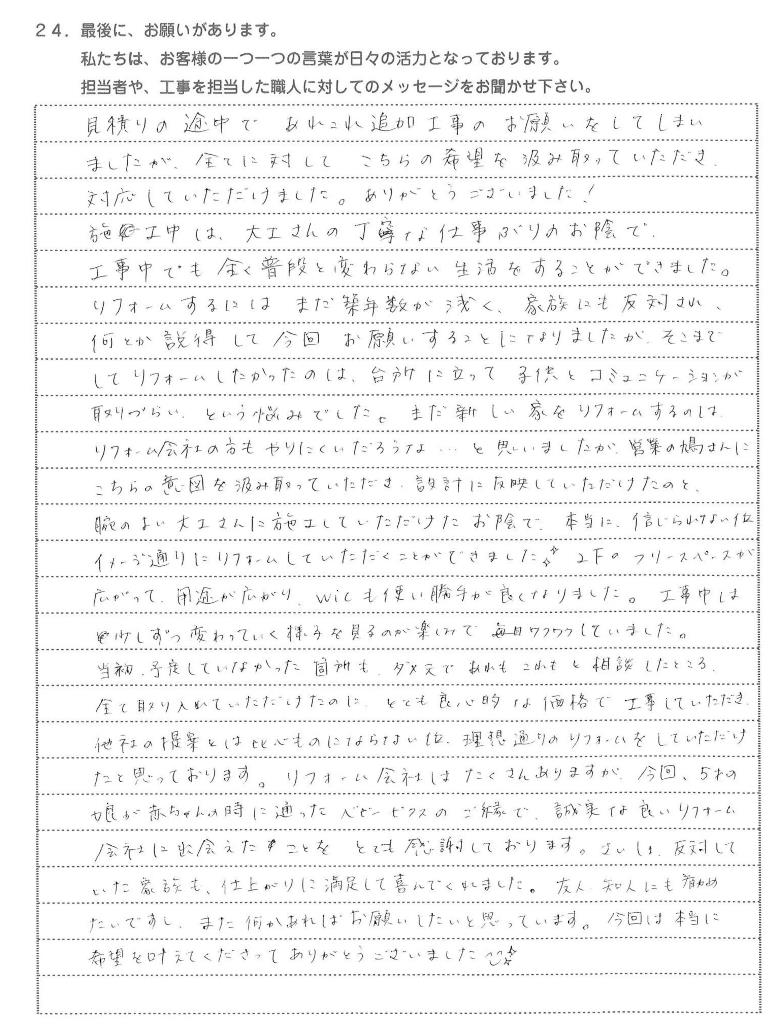 24．最後に、お願いがあります。
私たちは、お客様の一つ一つの言葉が日々の活力となっております。
担当者や、工事を担当した職人に対してのメッセージをお聞かせ下さい。
見積りの途中で あれこれ追加工事の お願いをしてしまい
ましたが、全てに対して こちらの希望を汲み取っていただき、
対応していただけました。ありがとうございました！
施工中は、大工さんの丁寧な仕事ぶりのお陰で、
工事中でも全く普段と変わらない生活をすることができました。
リフォームするには まだ築年数が浅く、家族にも反対され、
何とか説得して今回 お願いすることになりましたが、そこまで
してリフォームしたかったのは、台所に立って 子供とコミュニケーションが
取りづらい、という悩みでした。まだ新しい家をリフォームするのは、
リフォーム会社の方もやりにくいだろうな…と思いましたが、営業の鳩さんに
こちらの意図を汲み取っていただき、設計に反映していただけたのと、
腕のよい大工さんに施工していただけたお陰で、本当に、信じられない位
イメージ通りにリフォームしていただくことができました。2Fのフリースペースが
広がって、用途が広がり、wicも使い勝手が良くなりました。工事中は
少しずつ変わっていく様子を見るのが楽しみで 毎日ワクワクしていました。
当初、予定していなかった箇所も、ダメ元であれもこれもと相談したところ、
全て取り入れていただけたのに、とても良心的な価格で工事していただき、
他社の提案とは比べものにならない位、理想通りのリフォームをしていただけ
たと思っております。リフォーム会社はたくさんありますが、今回、5才の
娘が赤ちゃんの時に通ったベビービクスのご縁で、誠実な良いリフォーム
会社に出会えたことを とても感謝しております。さいしょ、反対して
いた家族も、仕上がりに満足して喜んでくれました。友人、知人にも勧め
たいですし、また何かあればお願いしたいと思っています。今回は本当に
希望を叶えてくださってありがとうございました